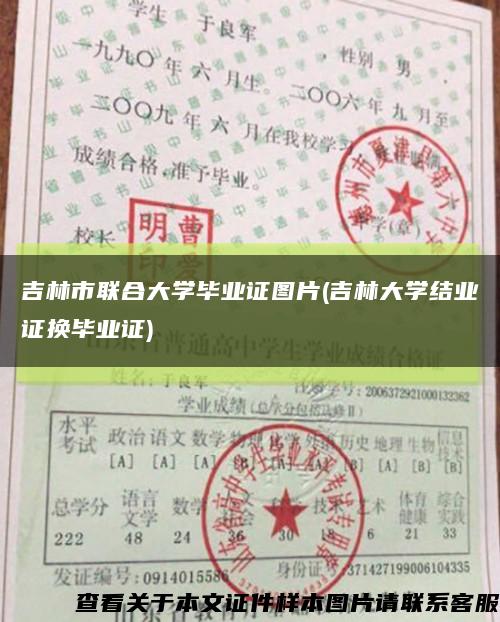 学生 于良军 ，性别 男 ，
一九九〇 年 六 月生。二〇〇六 年 九 月至
二〇〇九 年 六 月在我校学习
成绩合格，准予毕业。
德州市夏津县第六中学
学(章)
校长
曹爱明印
吉林市联合大学毕业证图片(吉林大学结业
证换毕业证)
山东省普通高中学生学业成绩合格证
姓名:于良军
号:2006372921000132362
学业成绩(总学分包括必修Ⅱ)
水平考试 政治 语文 数学 物理 化学 外语 历史 地理 生物 信息技术
[A] [A] [A] [B] [A] [B] [B]
总学分 语言文学 数学 科学 技术 艺术 体育健康 综合实践
222 48 24 36 30 18 6 21 33
发证编号:0914015586 身份证号:371427199006104335
查看关于本文证件样本图片请联系客服